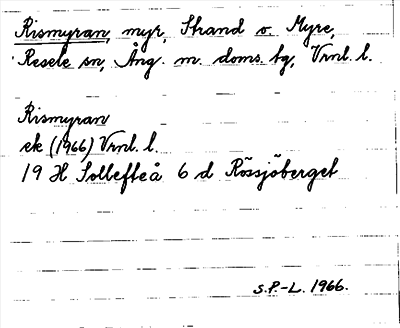 Rismyran, myr, Strand o. Myre,
Resele sn, Ång. m. doms. bg, Vrnl. l.
Rismyran
ek (1966) Vrnl. l.
19 H Sollefteå 6 d Rössjöberget
S.P.-L. 1966.